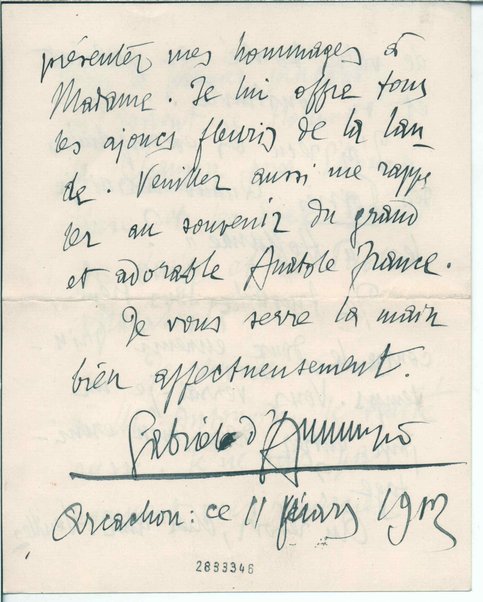 présenter mes hommages à
Madame. Je lui offre tous
les ajoncs fleuris de la lan
de. Veuillez aussi me rappe
ler au souvenir du grand
et adorable Anatole France.
Je vous serre la main
bien affectueusement.
Gabriele d'Annunzio
Arcachon: ce 11 mars
2883346